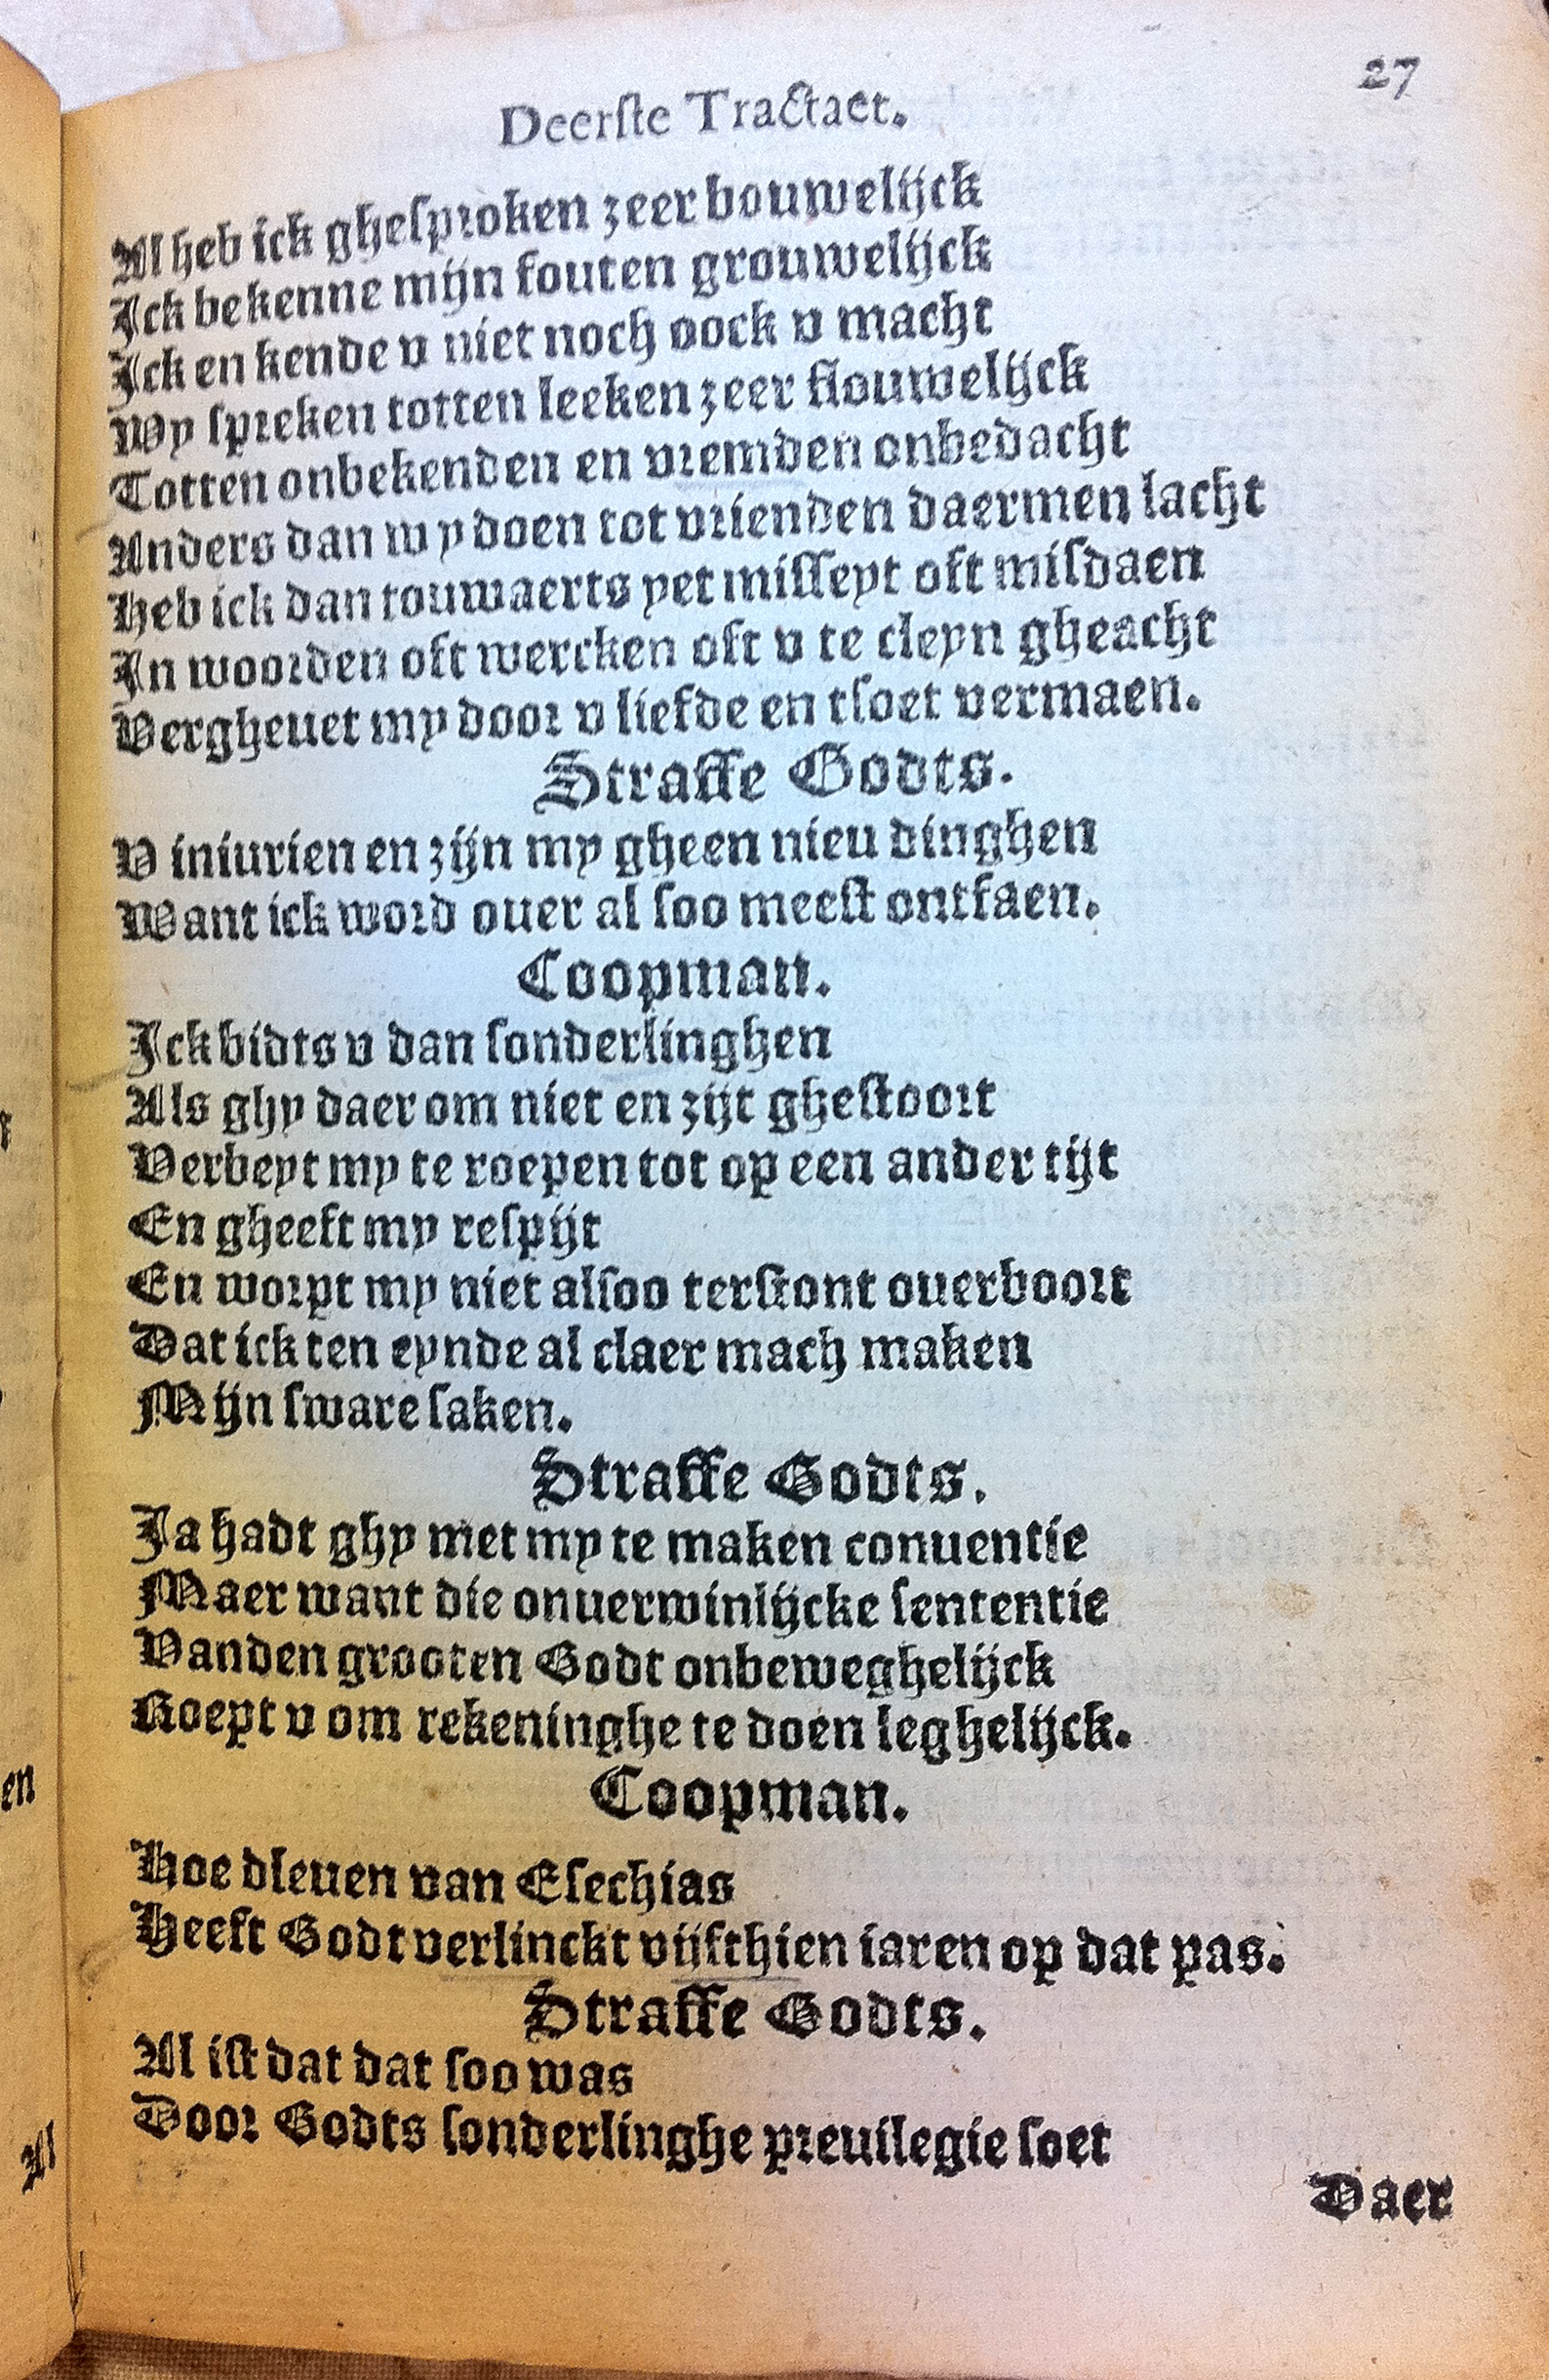 27
Deerste Tractaet.
Al heb ick ghesproken zeer bouwelijck
Ick bekenne mijn fouten grouwelijck
Ick en kende v niet noch oock v macht
Wy spreken totten leeken zeer flouwelijck
Totten onbekenden en vremden onbedacht
Anders dan wy doen tot vrienden daermen lacht
Heb ick dan touwaerts yet misseyt oft misdaen
In woorden oft wercken oft v te cleyn gheacht
Vergheuet my door v liefde en tsoet vermaen.
Straffe Godts.
V iniurien en zijn my gheen nieu dinghen
Want ick word ouer al soo meest ontfaen.
Coopman.
Ick bidts v dan sonderlinghen
Als ghy daer om niet en zijt ghestoort
Verbeyt my te roepen tot op een ander tijt
En gheeft my respijt
En worpt my niet alsoo terstont ouerboort
Dat ick ten eynde al claer mach maken
Mijn sware saken.
Straffe Godts.
Ja hadt ghy met my te maken conuentie
Maer want die onuerwinlijcke sententie
Vanden grooten Godt onbeweghelijck
Roept v om rekeninghe te doen leghelijck.
Coopman.
Hoe dleuen van Esechias
Heeft Godt verlinckt vijfthien iaren op dat pas.
Straffe Godts.
Al ist dat dat soo was
Door Godts sonderlinghe preuilegie soet
Daer
en
Al